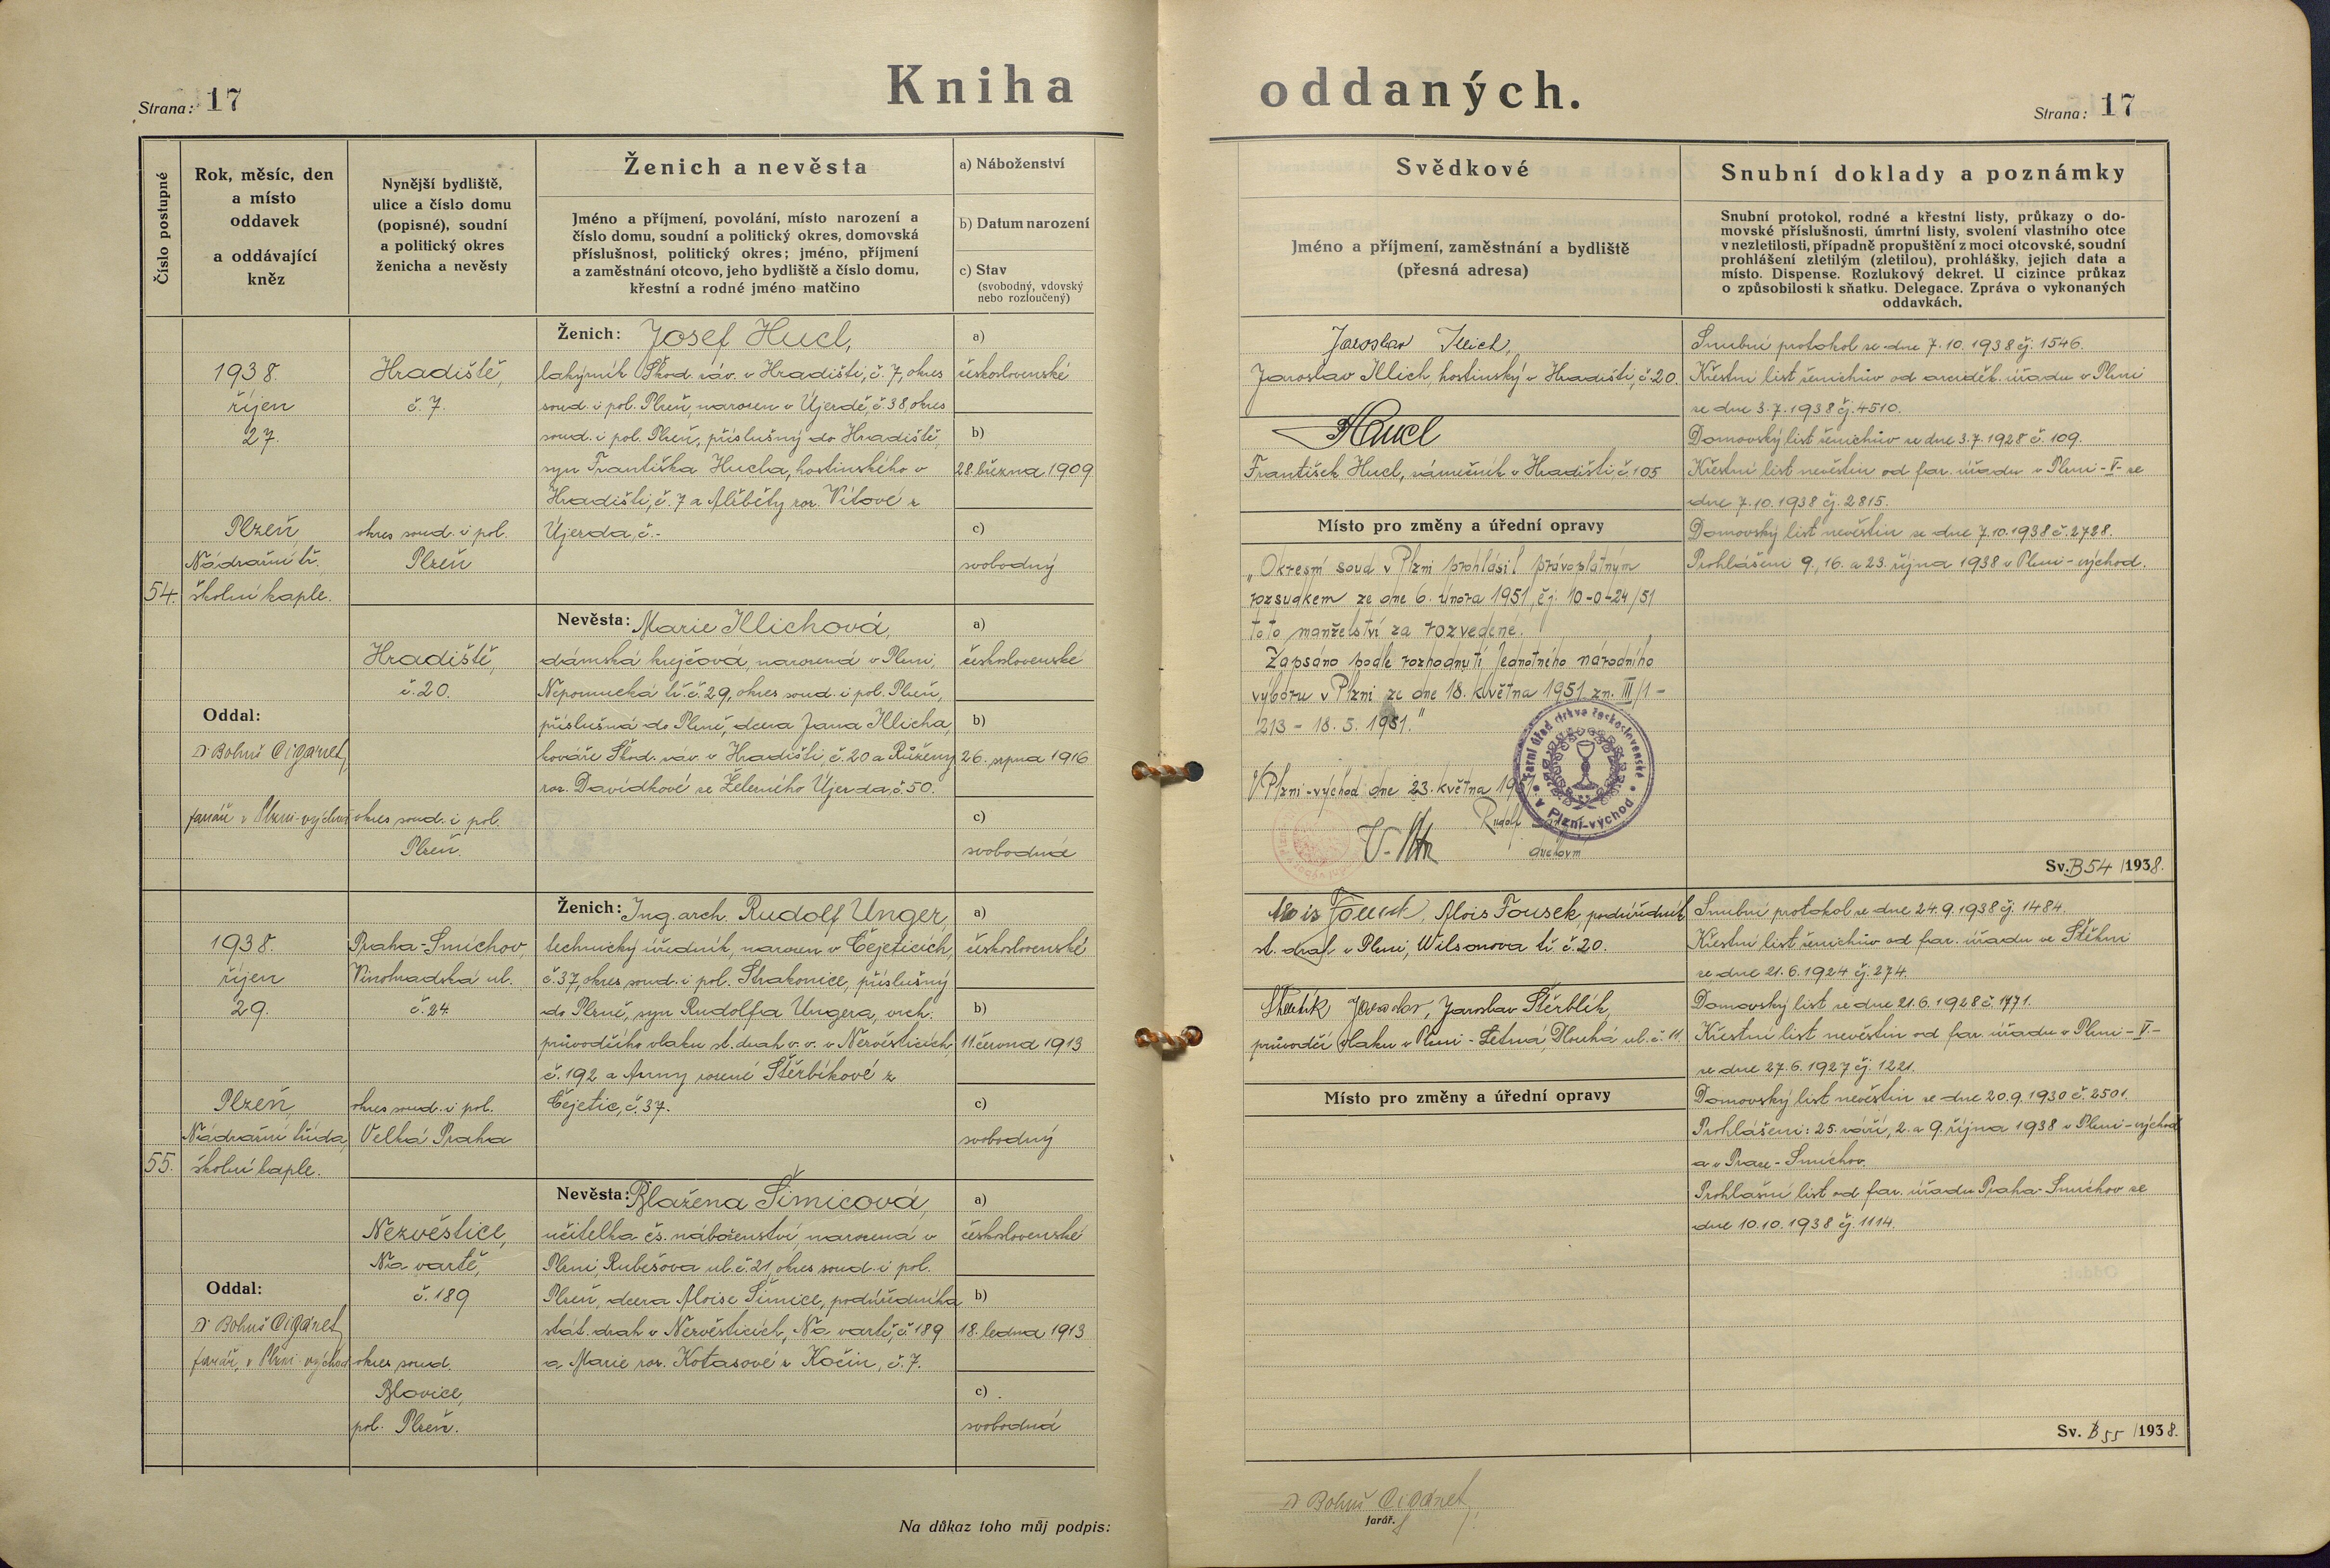 Strana: 17
Kniha oddaných.
Strana: 17
Číslo postupné
Rok, měsíc, den
a místo
oddavek
a oddávající
kněz
Nynější bydliště,
ulice a číslo domu
(popisné), soudní
a politický okres
ženicha a nevěsty
Ženich a nevěsta
Jméno a příjmení, povolání, místo narození a
číslo domu, soudní a politický okres, domovská
příslušnost, politický okres; jméno, příjmení
a zaměstnání otcovo, jeho bydliště a číslo domu,
křestní a rodné jméno matčino
a) Náboženství
b) Datum narození
c) Stav
(svobodný, vdovský
nebo rozloučený)
Svědkové
Jméno a příjmení, zaměstnání a bydliště
(přesná adresa)
Snubní doklady a poznámky
Snubní protokol, rodné a křestní listy, průkazy o do-
movské příslušnosti, úmrtní listy, svolení vlastního otce
v nezletilosti, případně propuštění z moci otcovské, soudní
prohlášení zletilým (zletilou), prohlášky, jejich data a
místo. Dispense. Rozlukový dekret. U cizince průkaz
o způsobilosti k sňatku. Delegace. Zpráva o vykonaných
oddavkách.
54.
1938.
říjen
27.
Plzeň
Nádražní tř.
školní kaple.
Oddal:
Dr Bohuš Cigánek,
farář v Plzni-východ
Hradiště,
č. 7.
okres soud. i pol.
Plzeň
Ženich: Josef Hucl,
lakýrník Škod. záv. v Hradišti, č. 7, okres
soud. i pol. Plzeň, narozen v Újezdě, č. 38, okres
soud. i pol. Plzeň, příslušný do Hradiště,
syn Františka Hucla, hostinského v
Hradišti, č. 7 a Alžběty roz. Vítové z
Újezda, č. -
a)
československé
b)
28. března 1909
c)
svobodný
Hradiště,
č. 20.
okres soud. i pol.
Plzeň.
Nevěsta: Marie Illichová,
dámská krejčová, narozená v Plzni,
Nepomucká tř. č. 29, okres soud. i pol. Plzeň,
příslušná do Plzně, dcera Jana Illicha,
kováře Škod. záv. v Hradišti, č. 20 a Růženy
roz. Davídkové ze Železného Újezda, č. 50.
a)
československé
b)
26. srpna 1916
c)
svobodná
Jaroslav Illich,
Jaroslav Illich, hostinský v Hradišti, č. 20.
Hucl
František Hucl, zámečník v Hradišti, č. 105
Místo pro změny a úřední opravy
„Okresní soud v Plzni prohlásil právoplatným
rozsudkem ze dne 6. února 1951, čj. 10-0-24/51
toto manželství za rozvedené.
Zapsáno podle rozhodnutí Jednotného národního
výboru v Plzni ze dne 18. května 1951 zn. III/1-
213 - 18. 5. 1951."
V Plzni-východ dne 23. května 19
Rudolf
duchovní
Farní úřad církve československé
v Plzni-východ
Snubní protokol ze dne 7. 10. 1938 čj. 1546.
Křestní list ženichův od arciděk. úřadu v Plzni
ze dne 3. 7. 1938 čj. 4510.
Domovský list ženichův ze dne 3. 7. 1928 č. 109.
Křestní list nevěstin od far. úřadu v Plzni - V - ze
dne 7. 10. 1938 čj. 2815.
Domovský list nevěstin ze dne 7. 10. 1938 č. 2728.
Prohlášeni 9., 16. a 23. října 1938 v Plzni-východ.
Sv. B 54 /1938.
55.
1938.
říjen
29.
Plzeň,
Nádražní třída,
školní kaple.
Oddal:
Dr Bohuš Cigánek,
farář, v Plzni-východ
Praha-Smíchov,
Vinohradská ul.
č. 24
okres soud. i pol.
Velká Praha
Ženich: Ing. arch. Rudolf Unger,
technický úředník, narozen v Čejeticích,
č. 37, okres soud. i pol. Strakonice, příslušný
do Plzně, syn Rudolfa Ungera, vrch.
průvodčího vlaku st. drah v. v. v Nezvěsticích,
č. 192 a Anny rozené Štěrbíkové z
Čejetic, č. 37.
a)
československé
b)
11. června 1913
c)
svobodný
Nezvěstice,
Na vartě,
č. 189
okres soud.
Blovice,
pol. Plzeň.
Nevěsta: Blažena Šimicová,
učitelka čs. náboženství, narozená v
Plzni, Rubešova ul. č. 21, okres soud. i pol.
Plzeň, dcera Aloise Šimice, podúředníka
stát. drah v Nezvěsticích, Na vartě, č. 189
a Marie roz. Kotasové z Kočin, č. 7.
a)
československé
b)
18. ledna 1913
c)
svobodná
Alois Fousek, Alois Fousek, podúředník
st. drah v Plzni, Wilsonova tř. č. 20.
Jaroslav, Jaroslav Štěrblík,
průvodčí vlaku v Plzni - Letná, Dlouhá ul. č. 11.
Místo pro změny a úřední opravy
Snubní protokol ze dne 24. 9. 1938 čj. 1484.
Křestní list ženichův od far. úřadu ve Štěkni
ze dne 21. 6. 1924 čj. 274.
Domovský list ze dne 21. 6. 1928 č. 1771.
Křestní list nevěstin od far. úřadu v Plzni - V -
ze dne 27. 6. 1927 čj. 1221.
Domovský list nevěstin ze dne 20. 9. 1930 č. 2501.
Prohlášeni: 25. září, 2. a 9. října 1938 v Plzni-východ
a v Praze - Smíchov.
Prohlašní list od far. úřadu Praha-Smíchov ze
dne 10. 10. 1938 čj. 1114.
Sv. B 55 /1938.
Na důkaz toho můj podpis:
Dr Bohuš Cigánek,
farář.